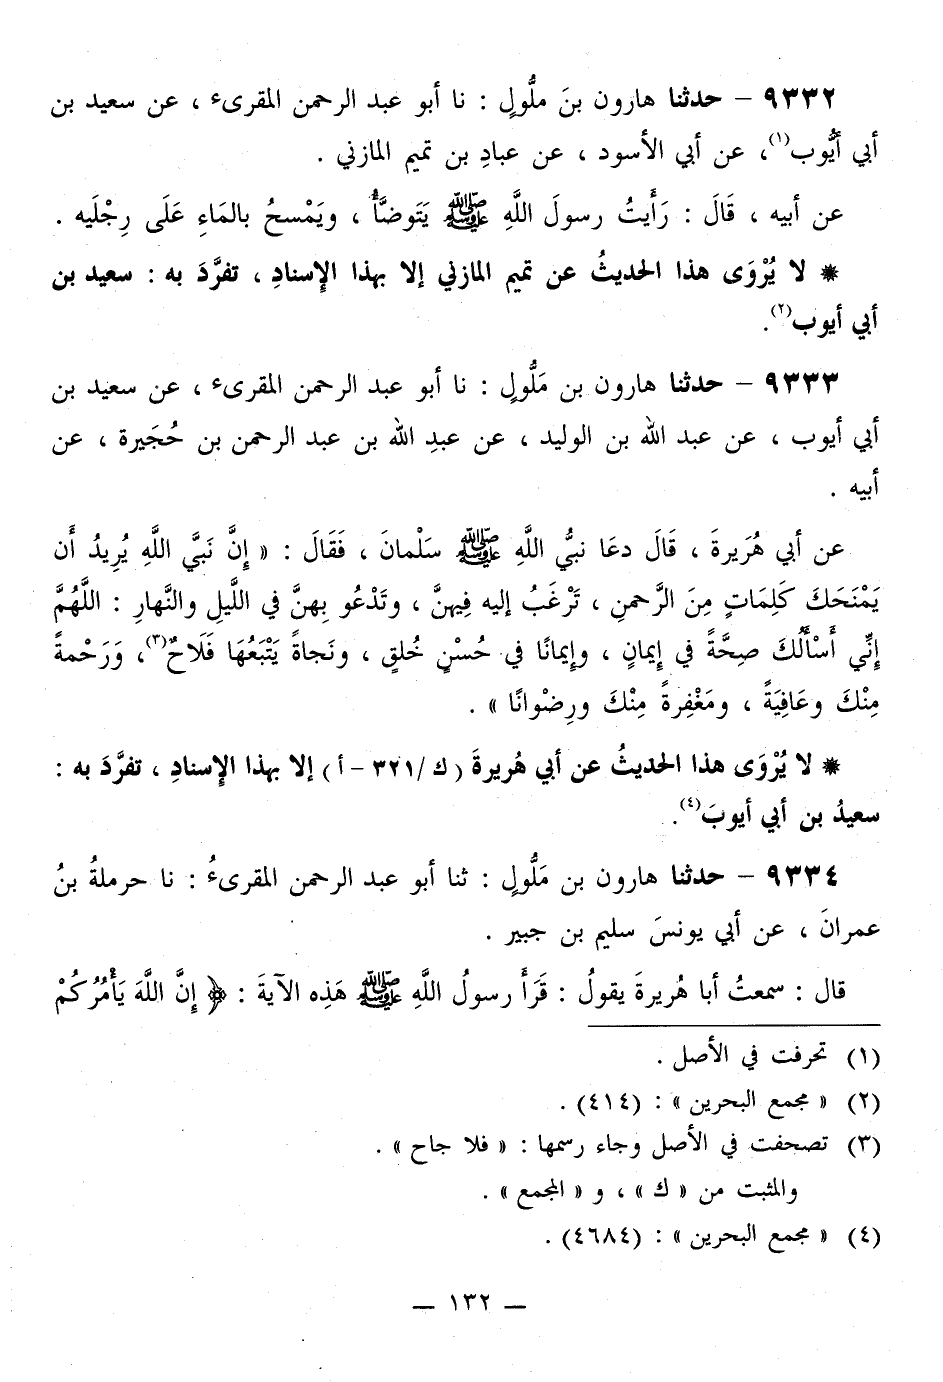 ٩٣٣٢ - حدثنا هارون بنَ ملُّولٍ : نا أبو عبد الرحمن المقرىء ، عن سعيد بن
أبي أيُّوب(١)، عن أبي الأسود ، عن عبادِ بن تميم المازني .
عن أبيه ، قَالَ : رَأَيتُ رسولَ اللَّهِ ﷺ يَتَوضَّأُ ، ويَمْسحُ بالمَاءِ عَلَى رِجْلَيه .
* لا يُرْوَى هذا الحديثُ عن تميم المازني إلا بهذا الإِسنادِ ، تفرَّدَ به : سعيد بن
أبي أيوب(٢).
٩٣٣٣ - حدثنا هارون بن مَلُّولٍ : نا أبو عبد الرحمن المقرىء ، عن سعيد بن
أبي أيوب ، عن عبد الله بن الوليد ، عن عبدِ الله بن عبد الرحمن بن حُجَيرة ، عن
أبيه .
عن أبي هُرَيرةَ ، قَالَ دعَا نبيُّ اللَّهِ ﷺ سَلْمانَ ، فَقَالَ : « إِنَّ نَبيَّ اللَّهِ يُرِيدُ أَن
يَمْنَحَكَ كَلِمَاتٍ مِنَ الرَّحمنِ ، تَرْغَبُ إليه فِيهنَّ ، وتَدْعُو بِهنَّ في اللَّيلِ والنَّهارِ : اللَّهُمَّ
إِنِّي أَسْأَلُكَ صِحَّةً في إِيمَانٍ ، وإِيمَانًا في حُسْنِ خُلقٍ ، ونَجاةً يَتْبَعُهَا فَلَاحٌ(٣)، وَرَحْمةً
مِنْكَ وعَافِيَةً ، ومَغْفِرةً مِنْكَ ورِضْوانًا » .
* لا يُرْوَى هذا الحديثُ عن أبي هُريرةَ (ك /٣٢١ - أ) إلا بهذا الإِسنادِ ، تفرَّدَ به :
سعيدُ بن أبي أيوبَ(٤).
٩٣٣٤ - حدثنا هارون بن مَلُّولٍ : ثنا أبو عبد الرحمن المقرىءُ : نا حرملةُ بنُ
عمرانَ ، عن أبي يونسَ سليم بن جبير .
قال : سمعتُ أبا هُريرةَ يقولُ : قَرَأَ رسولُ اللَّهِ ﷺ هَذِه الآيةَ : ﴿ إِنَّ اللَّهَ يَأْمُرُكُمْ
(١) تحرفت في الأصل .
(٢) « مجمع البحرين » : (٤١٤) .
(٣) تصحفت في الأصل وجاء رسمها : « فلا جاح » .
والمثبت من « ك » ، و « المجمع » .
(٤) « مجمع البحرين » : (٤٦٨٤) .
— ١٣٢ —